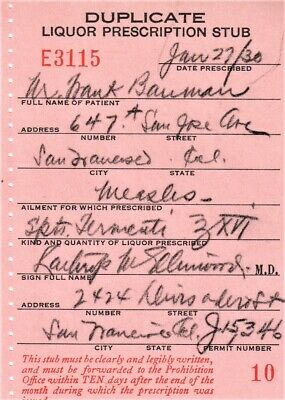 DUPLICATE
LIQUOR PRESCRIPTION STUB
E3115 Jan 27/30
DATE PRESCRIBED
Mr. Frank Bauman
FULL NAME OF PATIENT
ADDRESS 647A San Jose Ave
NUMBER STREET
San Francisco Cal.
CITY STATE
Measles
AILMENT FOR WHICH PRESCRIBED
Spts. Fermenti ℥ XVI
KIND AND QUANTITY OF LIQUOR PRESCRIBED
M. Ellinwood M.D.
SIGN FULL NAME
ADDRESS 2424 Divisadero St
NUMBER STREET
San Francisco Cal. J15346
CITY STATE PERMIT NUMBER
This stub must be clearly and legibly written,
and must be forwarded to the Prohibition
Office within TEN days after the end of the
month during which the prescription was
10